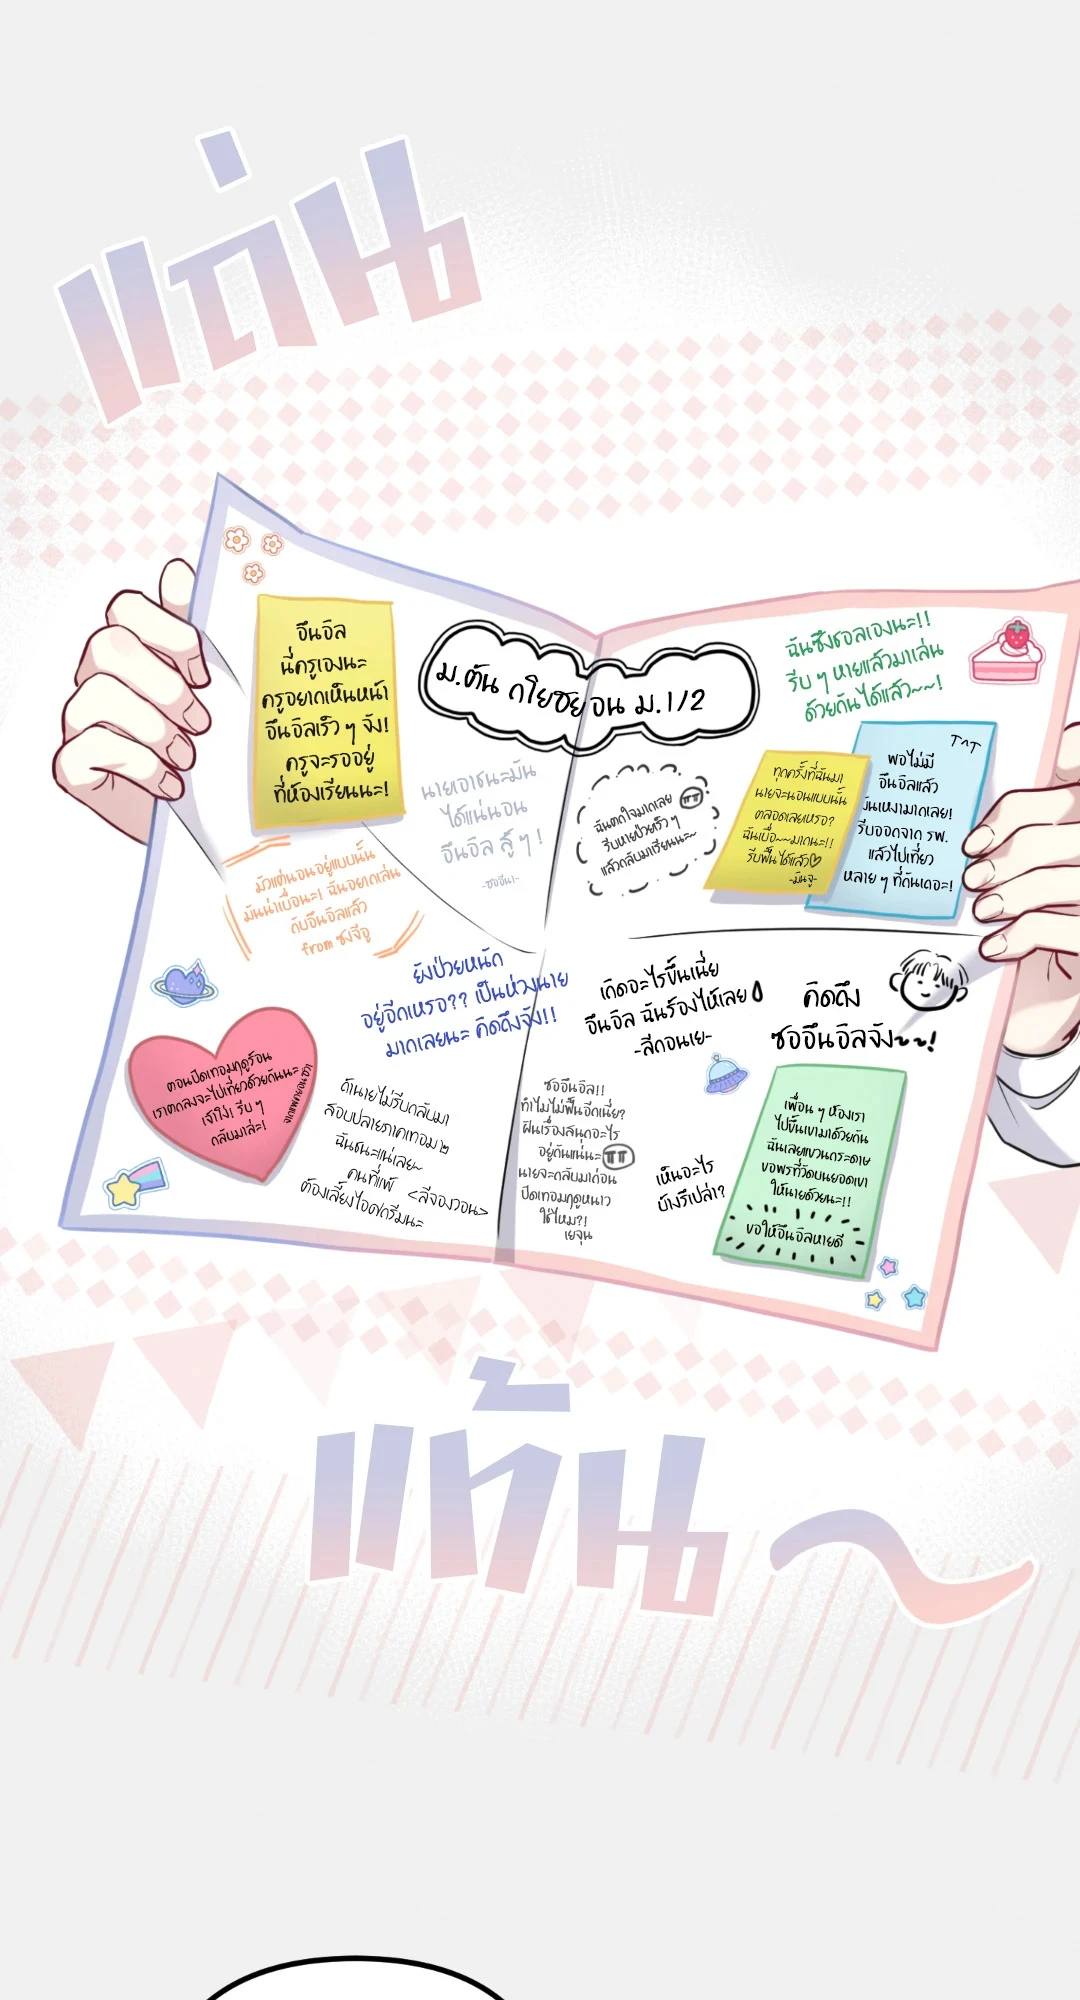 แถ่น
อึนอิล
นี่ครูเองนะ
ครูอยากเห็นหน้า
อึนอิลเร็ว ๆ จัง!
ครูจะรออยู่
ที่ห้องเรียนนะ!
ม.ต้น กาโยซยอน ม.1/2
ฉันซึงฮอลเองนะ!!
รีบ ๆ หายแล้วมาเล่น
ด้วยกันได้แล้ว~~!
นายเอาชนะมัน
ได้แน่นอน
อึนอิล สู้ ๆ !
ฉันตกใจมากเลย ㅠㅠ
รีบหายป่วยเร็ว ๆ
แล้วกลับมาเรียนนะ~
ทุกครั้งที่ฉันมา
นายจะนอนแบบนั้น
ตลอดเลยเหรอ?
ฉันเบื่อ~~มากนะ!!
รีบฟื้นได้แล้ว♡
-มินจู-
T^T
พอไม่มี
อึนอิลแล้ว
มันเหงามากเลย!
รีบออกจาก รพ.
แล้วไปเที่ยว
หลาย ๆ ที่กันเถอะ!
มัวแต่นอนอยู่แบบนั้น
มันน่าเบื่อนะ! ฉันอยากเล่น
กับอึนอิลแล้ว
from ซงจีอู
ยังป่วยหนัก
อยู่อีกเหรอ?? เป็นห่วงนาย
มากเลยนะ คิดถึงจัง!!
เกิดอะไรขึ้นเนี่ย
อึนอิล ฉันร้องไห้เลย
-ลีกอนเย-
คิดถึง
ซออึนอิลจัง~~!
ตอนปิดเทอมฤดูร้อน
เราตกลงจะไปเที่ยวด้วยกันนะ
เจ้าโง่! รีบ ๆ
กลับมาล่ะ!
ถ้านายไม่รีบกลับมา
สอบปลายภาคเทอม ๒
ฉันชนะแน่เลย~
คนที่แพ้
ต้องเลี้ยงไอศกรีมนะ
<ลีจองวอน>
ซออึนอิล!!
ทำไมไม่ฟื้นอีกเนี่ย?
ฝันเรื่องสนุกอะไร
อยู่กันแน่นะ ㅠㅠ
นายจะกลับมาก่อน
ปิดเทอมฤดูหนาว
ใช่ไหม?!
เยจุน
เห็นอะไร
บ้างรึเปล่า?
เพื่อน ๆ ห้องเรา
ไปขึ้นเขามาด้วยกัน
ฉันเลยแขวนกระดาษ
ขอพรที่วัดบนยอดเขา
ให้นายด้วยนะ!!
ขอให้อึนอิลหายดี
แท้น~